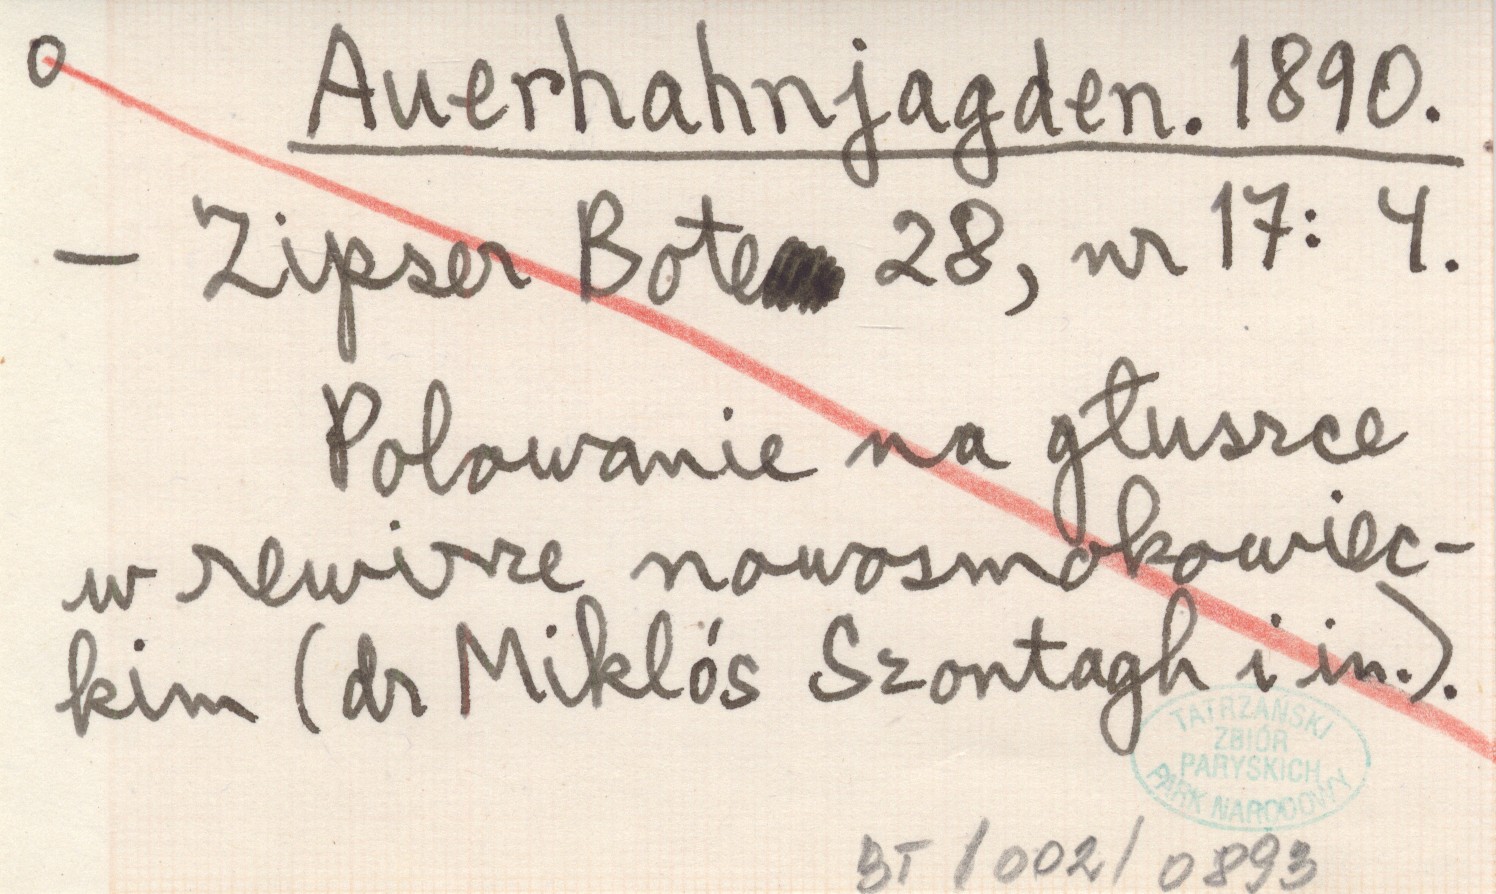 o Auerhahnjagden. 1890.
– Zipser Bote 28, nr 17: 4.
Polowanie na głuszce
w rewirze nowosmokowiec-
kim (dr Miklós Szontagh i in.).
TATRZAŃSKI
ZBIÓR
PARYSKICH
PARK NARODOWY
BT/002/0893